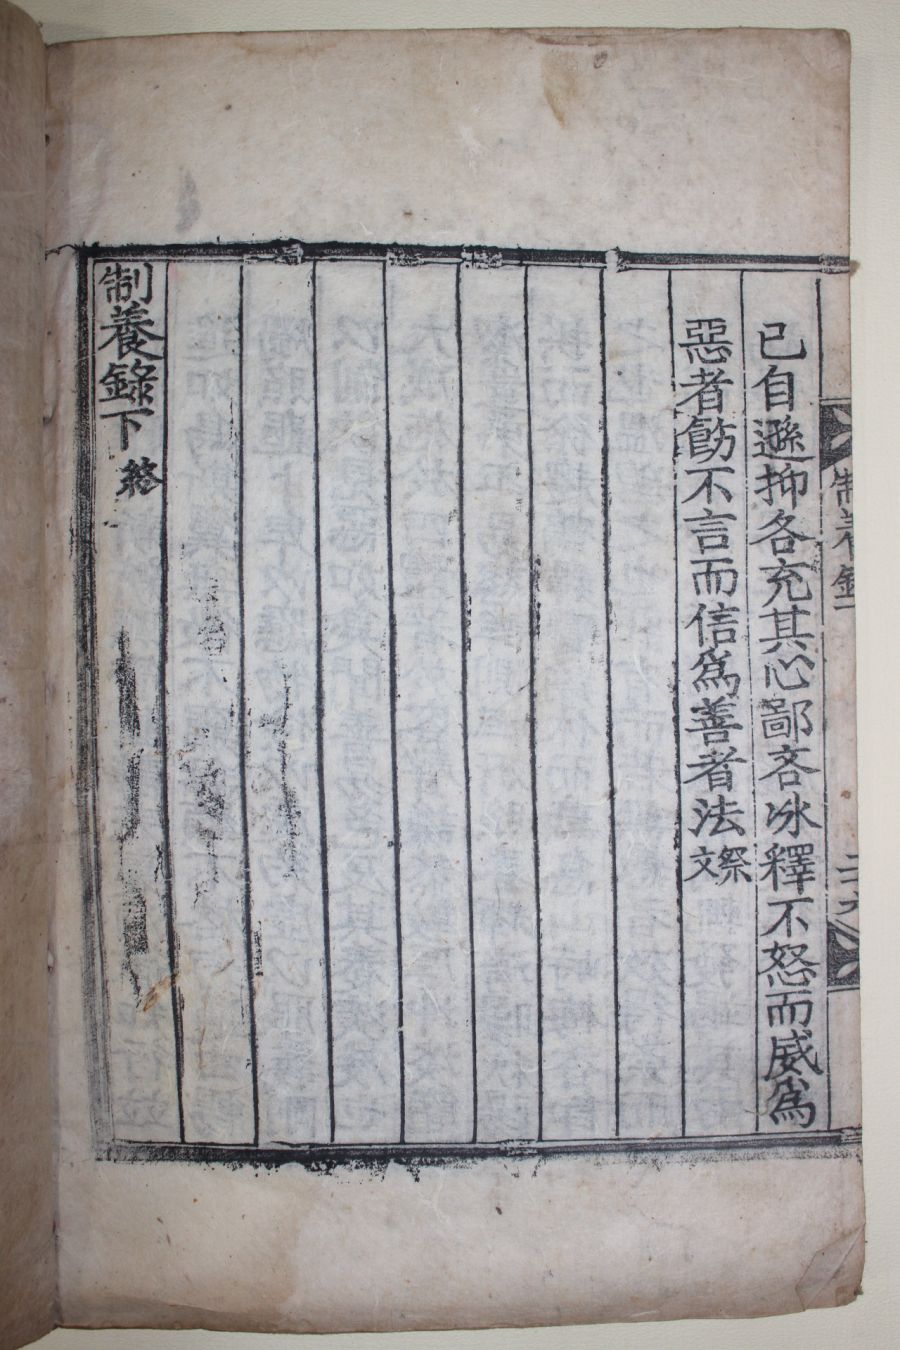 制養錄
二十六
已自遜抑各充其心鄙吝冰釋不怒而威爲
惡者飭不言而信爲善者法祭文
制養錄下 終